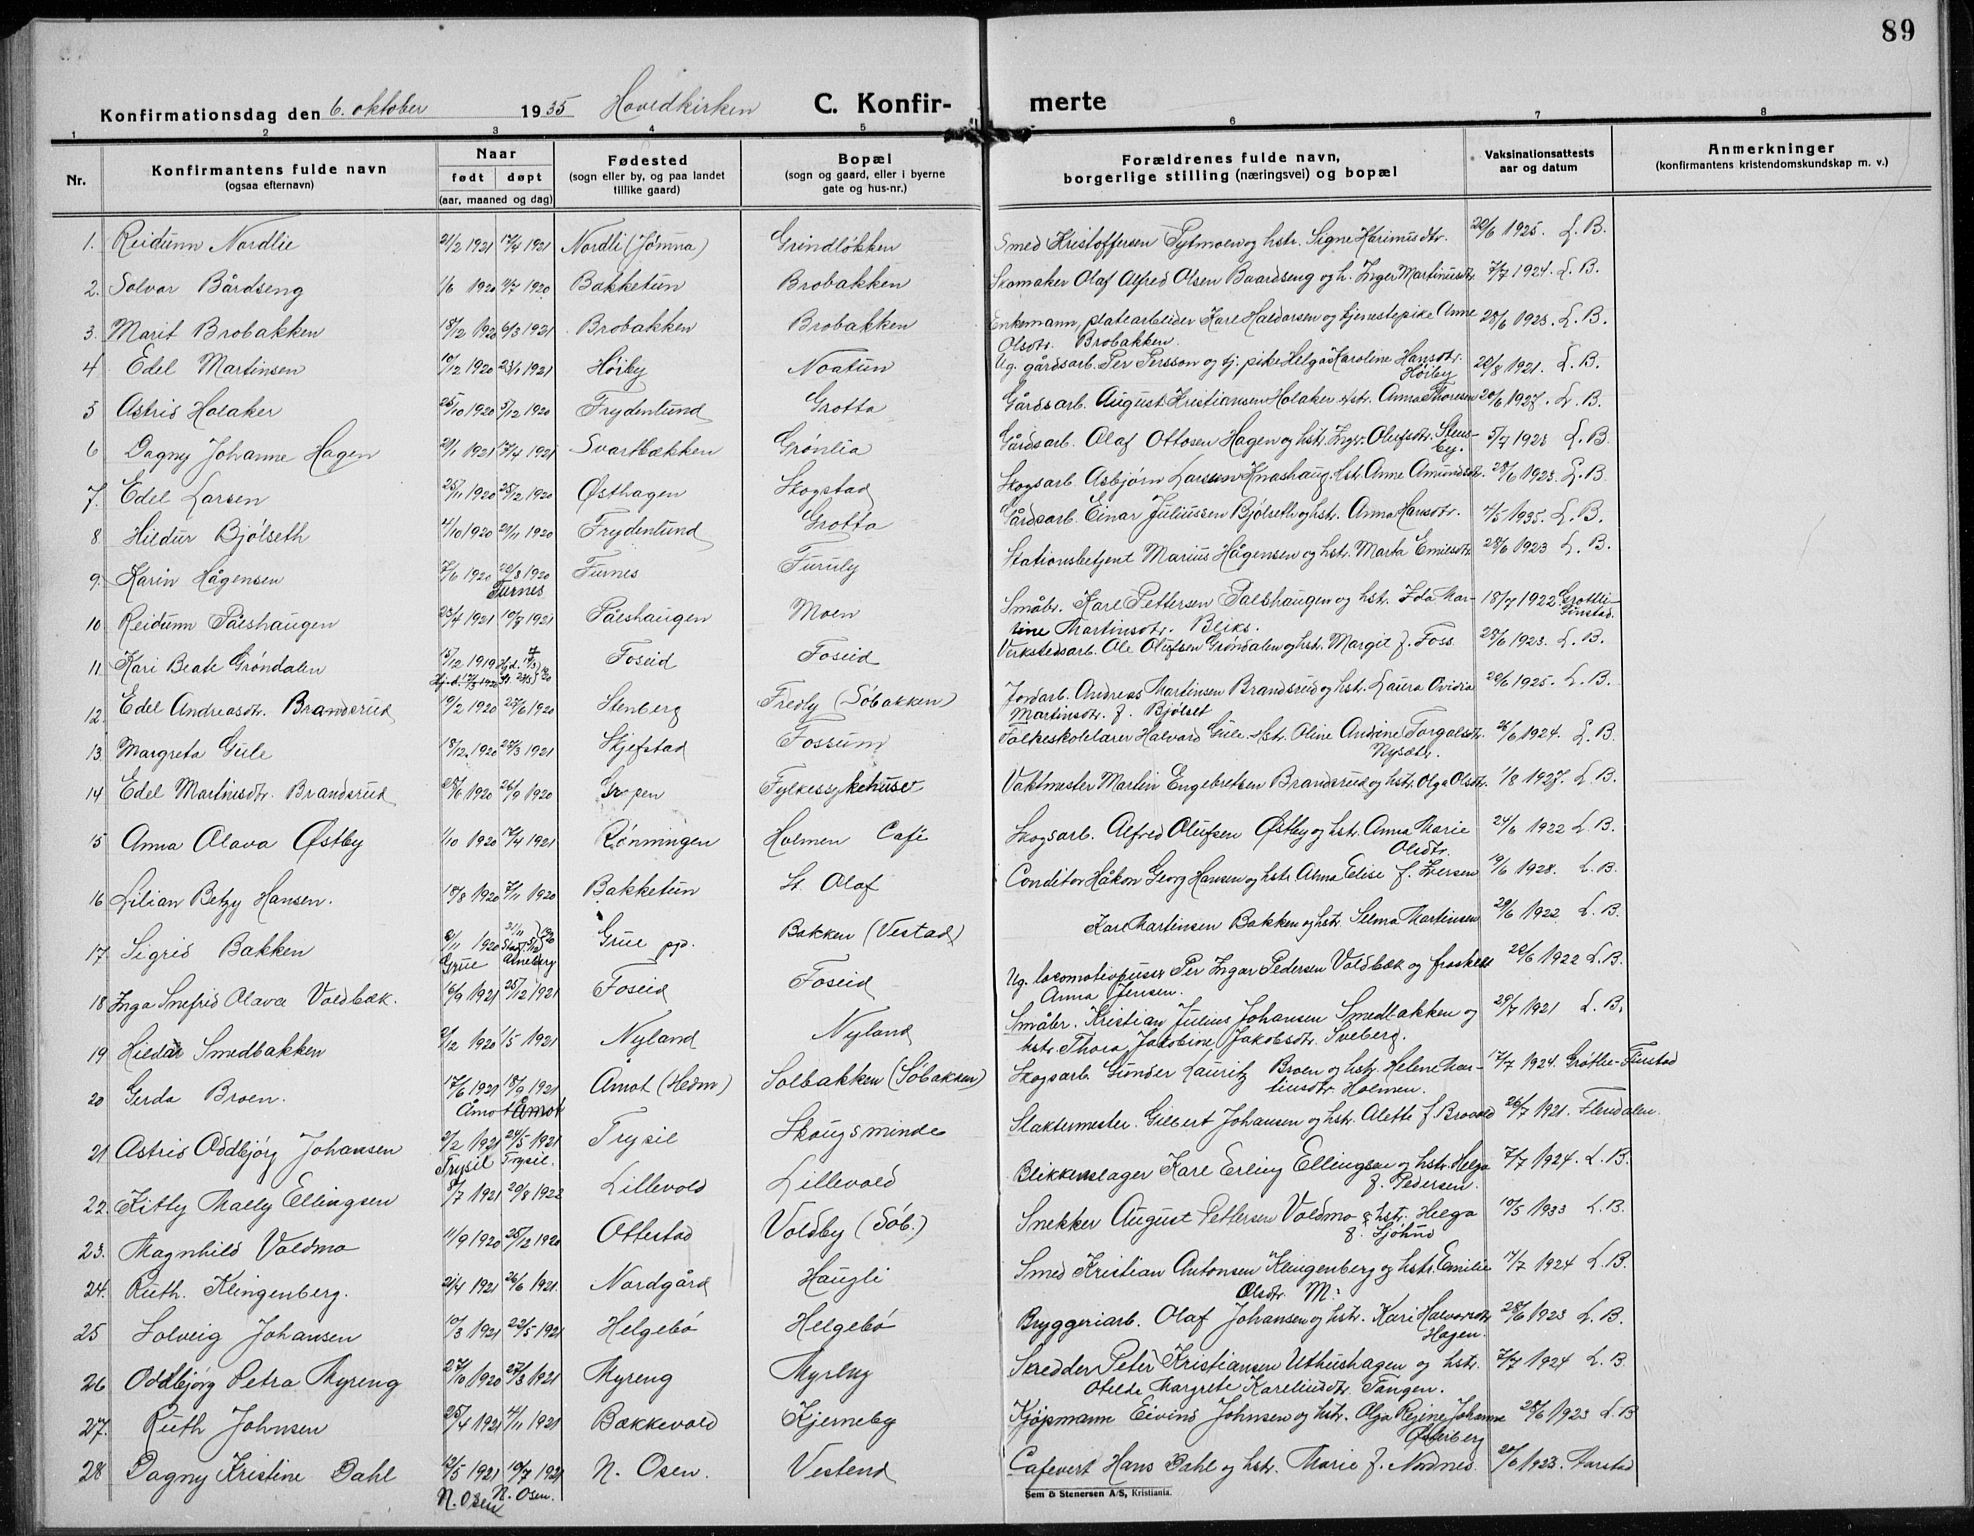 89
Konfirmationsdag den 6. oktober 1935 Hovedkirken C. Konfir- merte
1 2 3 4 5 6 7 8
Nr. Konfirmantens fulde navn (ogsaa efternavn) Naar født døpt (aar, maaned og dag) Fødested (sogn eller by, og paa landet tillike gaard) Bopæl (sogn og gaard, eller i byerne gate og hus-nr.) Forældrenes fulde navn, borgerlige stilling (næringsvei) og bopæl Vaksinationsattests aar og datum Anmerkninger (konfirmantens kristendomskundskap m. v.)
1. Reidunn Nordlie 21/2 1921 17/4 1921 Nordli (Jømna) Grindløkken Smed Kristoffersen Tytmoen og hstr. Signe Harimusdtr. 1925. L. B.
2. Solvor Bårdseng 1/6 1920 1920 Bakketun Brobakken Skomaker Olaf Alfred Olsen Baardseng og h. Inger Martinusdtr 7/7 1924. L. B.
3. Marit Brobakken 1920 6/3 1921 Brobakken Brobakken Enkemann, platearbeider Karl Haldorsen og tjenestepike Anne
Olsdtr. Brobakken. 28/6 1923. L. B.
4 Edel Martinsen 10/12 1920 23/1 1921 Høiby Noatun Ug. gårdsarb. Per Persson og tj. pike Helga Karoline Hansdtr.
Høiby 1921. L. B.
5 Astrid Holaker 25/10 1920 5/12 1920 Frydenlund Grotta Gårdsarb. August Kristiansen Holaker hstr. Anna Thoresen 20/6 1927. L. B.
6 Dagny Johanne Hagen 1921 17/4 1921 Svartbækken Grønlia Gårdsarb. Olaf Ottosen Hagen og hstr. Ingr. Olufsdtr. Stens-
by. 5/7 1923 L. B.
7. Edel Larsen 25/11 1920 25/12 1920 Østhagen Skogstad Skogsarb. Asbjørn Larssen Knashaug. hstr. Anne Amundsdtr. 28/6 1923. L. B.
8 Hildur Bjølseth 4/10 1920 1920 Frydenlund Grotta Gårdsarb. Einar Juliussen Bjølseth og hstr. Anna Hansdtr. 1935. L. B.
9. Karin Hågensen 7/6 1920 1920 Furnes Furuly Stationsbetjent Marius Hågensen og hstr. Marta Emilsdtr 28/6 1923 L. B.
Furnes
10 Reidunn Pålshaugen 23/4 1921 1921 Pålshaugen Moen Småbr. Karl Pettersen Palshaugen og hstr. Ida Mar-
tine Martinsdtr. Bliks. 18/7 1922.
11. Kari Beate Grøndalen 15/12 1919 Foseid Foseid Verkstedsarb. Ole Olufsen Grøndalen og hstr. Margit f. Foss 28/6 1923. L. B.
12. Edel Andreasdtr. Brandsrud 19/2 1920 27/6 1920 Stenberg Fredly (Søbakken) Jordarb. Andreas Martinsen Brandsrud og hstr. Laura Ovidia
Martinsdtr. f. Bjølset 1925. L. B.
13. Margreta Gule 18/12 1920 1921 Skjefstad Fossum Folkeskolelærer Halvard Gule hstr. Oline Andrine Torgalsdtr.
Nysætr. 26/6 1924. L. B.
14 Edel Martinsdtr. Brandsrud 1920 26/9 1920 Gropen Fylkessykehuset Vaktmester Martin Engebretsen Brandsrud og hstr. Olga Olsdtr. 1/8 1927. L. B.
15 Anna Olava Østby 1/10 1920 17/4 1921 Rønningen Holmen Café Skogsarb. Alfred Olufsen Østby og hstr. Anna Marie
Olsdtr. 24/6 1922 L. B.
16 Lilian Betzy Hansen. 18/8 1920 7/11 1920 Bakketun St. Olaf Conditor Håkon Georg Hansen og hstr. Anna Elise f. Iversen 19/6 1928. L. B.
17. Sigrid Bakken 1920 21/11 Grue pgd. Bakken (Vestad) Karl Martinsen Bakken og hstr. Selma Martinsen 29/6 1922 L. B.
Grue
18 Inga Snefrid Olava Voldbæk. 16/9 1921 25/12 1921 Foseid Foseid Ug. locomotivpusser Per Ingar Pedersen Voldbæk og fraskilt
Anna Jensen. 20/6 1922 L. B.
19. Hildur Smedbakken 2/12 1920 1/5 1921 Nyland Nyland Småbr. Kristian Julius Johansen Smedbakken og
hstr. Thora Jakobine Jakobsdtr. Sveberg. 29/7 1921 L. B.
20 Gerda Broen. 17/6 1921 18/9 1921 Åmot (Hedm) Solbakken (Søbakken) Skogsarb. Gunder Lauritz Broen og hstr. Helene Mar-
tinsdtr. Holmen. 17/7 1924.
Åmot Åmot
21 Astrid Oddbjørg Johansen 2/2 1921 24/5 1921 Trysil Skougsminde Slaktermester. Gilbert Johansen og hstr. Alette f. Brovold 26/7 1921. Flendalen.
Trysil Trysil.
22. Kitty Mally Ellingsen 8/7 1921 20/8 1922 Lillevold Lillevold Blikkenslager Karl Erling Ellingsen og hstr. Helga
f. Pedersen. 7/7 1924. L. B.
23. Magnhild Voldmo 11/9 1920 26/12 1920 Ottestad Voldby (Søb.) Snekker August Pettersen Voldmo & hstr. Helga
f. Sjøhnd 10/5 1933 L. B.
24. Ruth. Klingenberg. 21/4 1921 26/6 1921. Nordgård Haugli Smed Kristian Antonsen Klingenberg og hstr. Emilie
Olsdtr. M: 7/7 1924 L. B.
25 Solveig Johansen 10/3 1921 22/5 1921 Helgebø Helgebø Bryggeriarb. Olaf Johansen og hstr. Kari Halvorsdtr
Hagen. 28/6 1923 L. B.
26 Oddbjørg Petra Myreng 27/10 1920 27/3 1921 Myreng Myreng Skredder Peter Kristiansen Uthushagen og hstr.
Otilde Margrete Kareliusdtr. Tangen. 7/7 1924 L. B.
27. Ruth Johnsen 25/4 1921 1921 Bækkevold Kjerneby Kjøpmann Eivind Johnsen og hstr. Olga Regine Johanne
Østerberg 28/6 1923 L. B
28 Dagny Kristine Dahl 12/5 1921 10/7 1921 N. Osen. Vestend Cafevert Hans Dahl og hstr. Marie f. Nordnes. 1923.
N. Osen N. Osen.
Sem & Stenersen A/S, Kristiania.